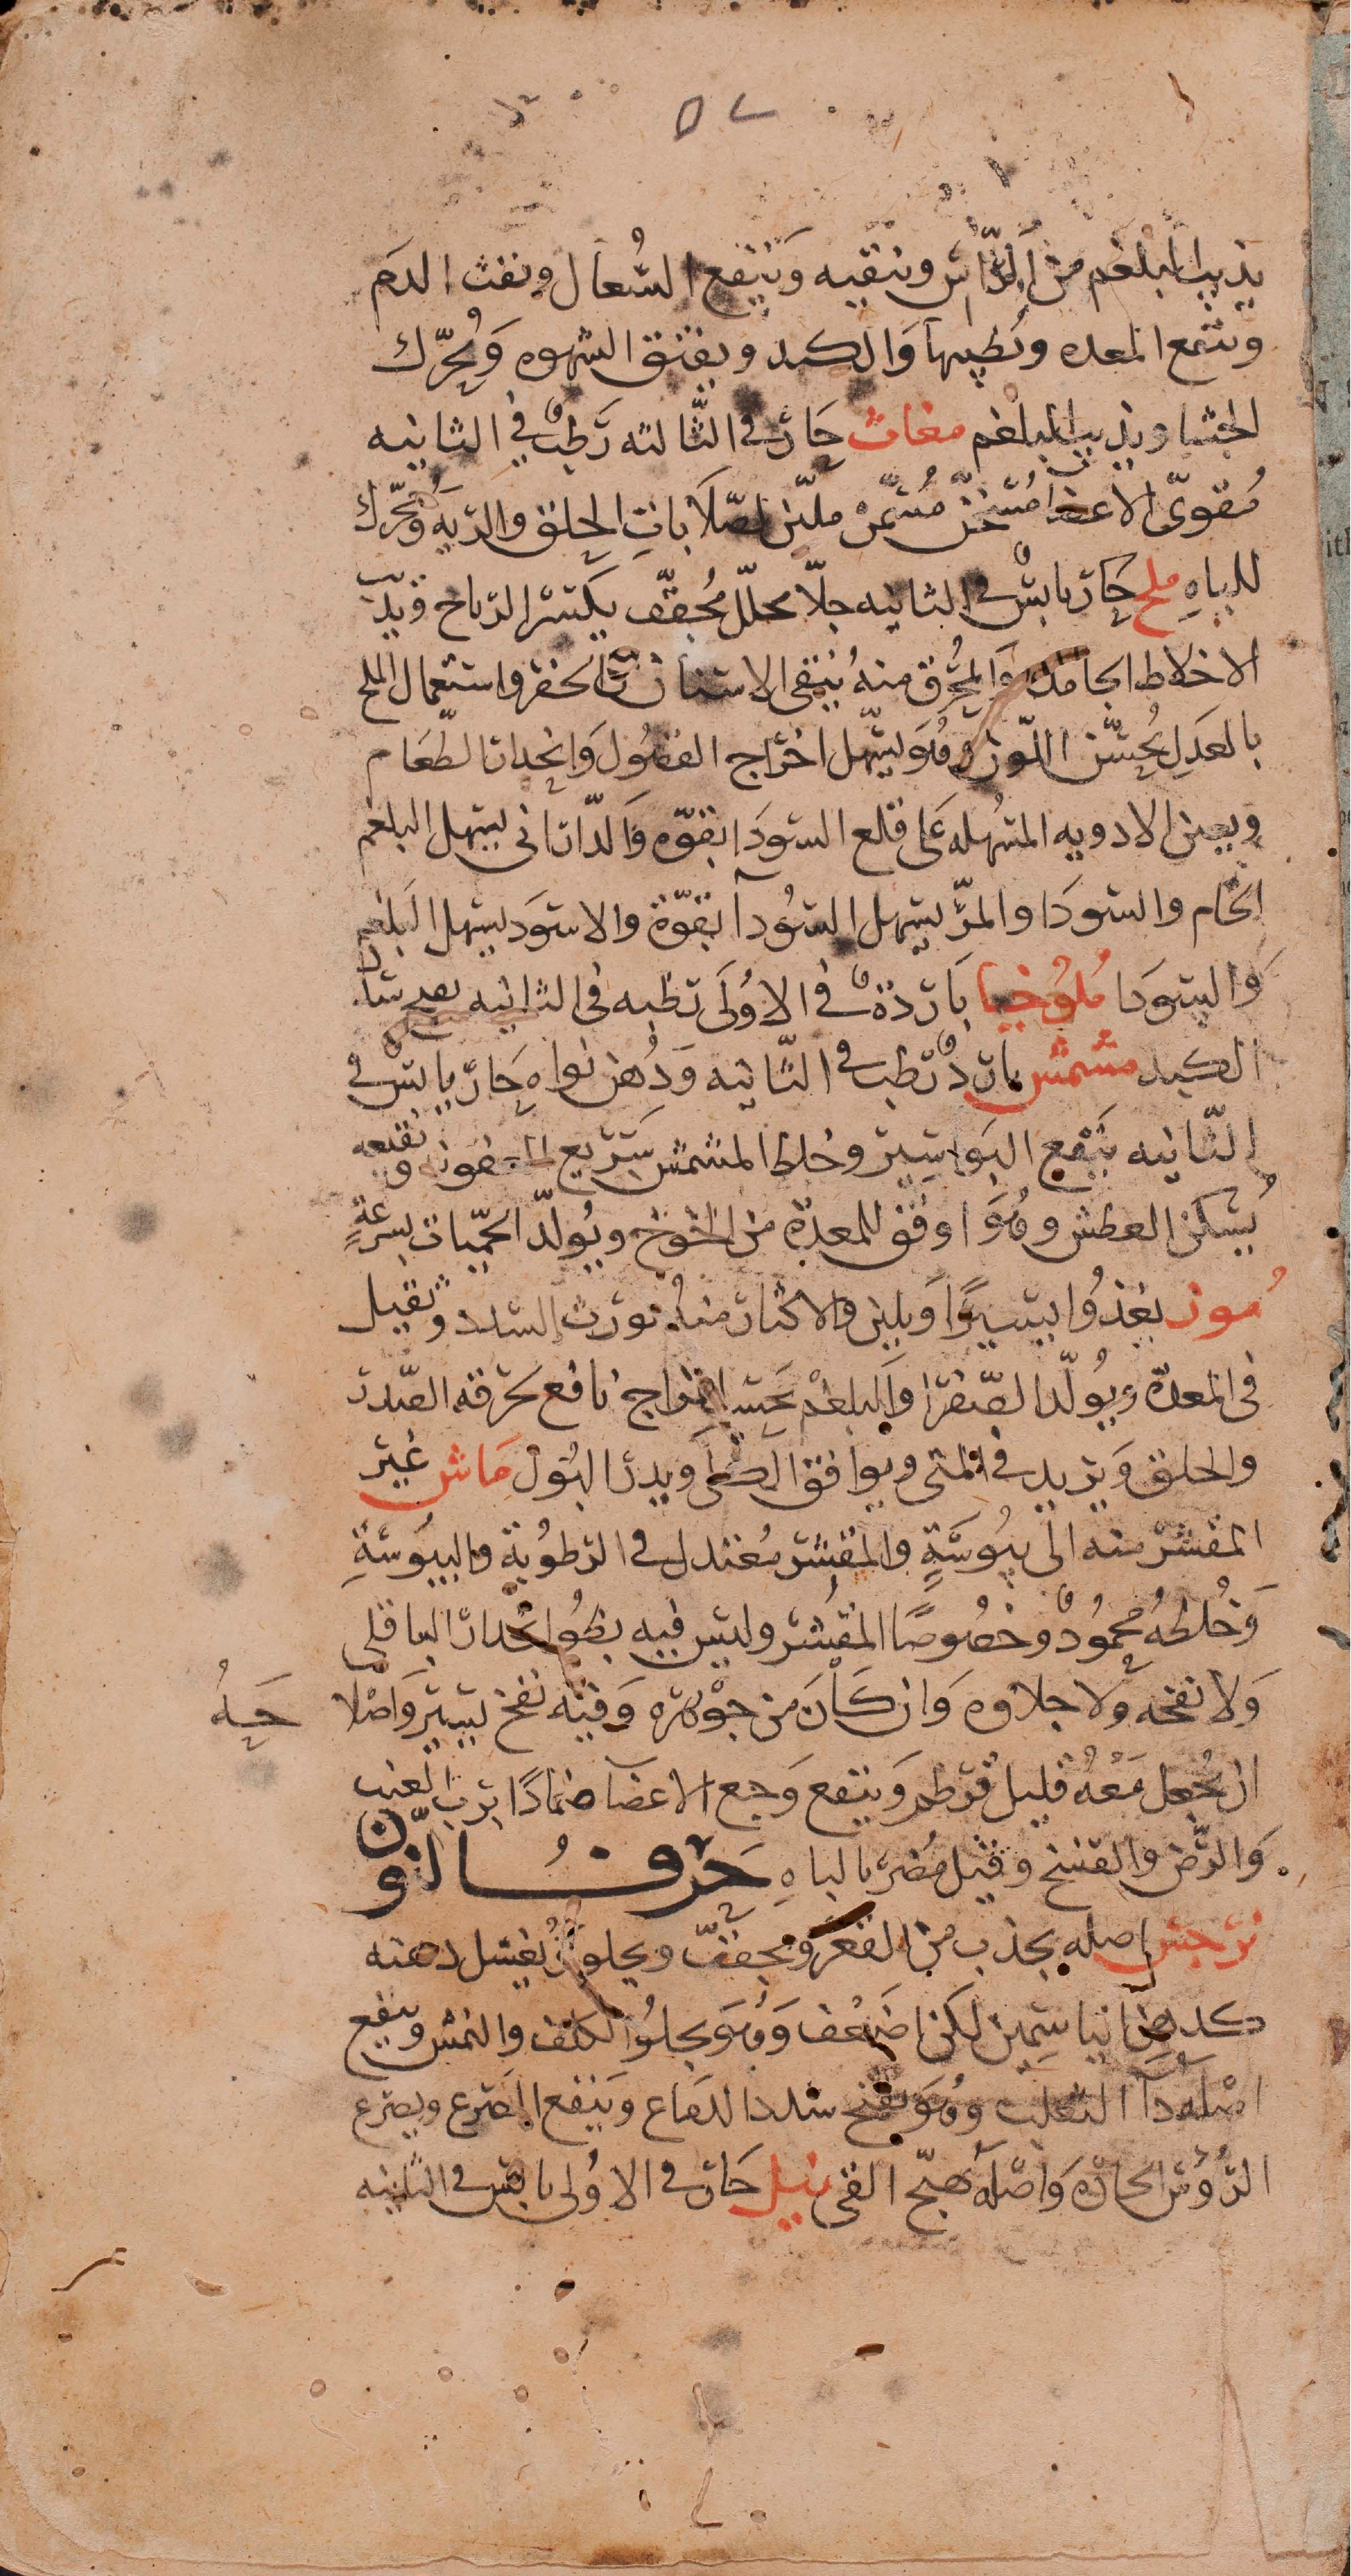 يذيب البلغم من الرّاس وينقيه وَينفع السُّعال ونفث الدم
وينفع المعده ويُطيبها وَالكبد ويفتق الشهوه وَيُحرّك
الجشا ويذيب البلغم مغاث حَارّ في الثّالثه رَطبٌ في الثانيه
مُقوىّ الاعضا مُسخّن مُسمّن مليّن لصّلاَبات الحلق والريه ومُحرّك
للباهِ ملح حَارّ يابسٌ في الثانيه جلاّ محلّل مُجفّف يكسّر الرّياح ويذيب
الاخلاط الجامده وَالمُحرق منهُ يُنقى الاسنان من الحفر واستعمال الملح
بالعَدل يُحسّن اللّون وهُوَ يسّهل اخراج الفضُول وَانحدار الطعَام
ويعين الادويه المسُهله عَلى قلع السّودَا بقوّه وَالدّارانى يسهل البلغم
الخام والسّودَا والمرّ يسهل السّوُدآ بقوّة والاسوَد يسهل البلغم
وَالسّودَا مُلوُخيا بَاردَةٌ في الاوُلَى رَطبه في الثانيه
الكبد مشمش باردٌ رَطب في الثّانيه وَدُهن نواه حَارّ يابسٌ في
الثّانيه يَنفع البَواسير وخلط المشمش سَريع العفونه ونقيعه
يُسكن العطش وهُوَ اوفق للمعدة من الخوخ ويُولّد الحمّيات بسرعَةٍ
مُوز يغذُوا يسيرًا وَيلين والاكثار منهُ يورث السدد وثقيل
في المعدة ويُولّد الصّفرا وَالبلغم بحَسب المزاج نافع لحرقه الصّدر
والحلق وَيزيد في المنى ويوافق الكلى ويدر البَول مَاش غير
المقشر منه الى يبُوسَةٍ والمُقشر مُعتدل في الرّطوُبة واليبُوسَةِ
وَخُلطهُ محمُودٌ وخصُوصًا المقُشر وليس فيه بطُو انحدار الباقلى
وَلا نفخه ولا جلاوه وَان كَانَ من جوْهره وَفيه نفخ يسير وَاصْلا حـهُ
ان يُجعل مَعْهُ قليل قرطم وَينفع وَجع الاعضآ ضمَادًا برب العنب
وَالرّض والفسخ وقيل مُضر بالباهِ حَرفُ النّون
نرجس اصله يجذب من القعر ومجفّف ويجلو ويُغسل دهنه
كدهن الياسمين لكن اضعَف وَهُوَ يجلُوا الكلف والنمش وينفع
اصْلهُ دَآ الثعلب وهُوَ يفتح سدد الدمَاغ وَينفع الصَرع ويصَدع
الرّؤس الحَارّه وَاصْلهُ يهيّج القى نيل حَارّ في الاوُلى يابس في الثانيه